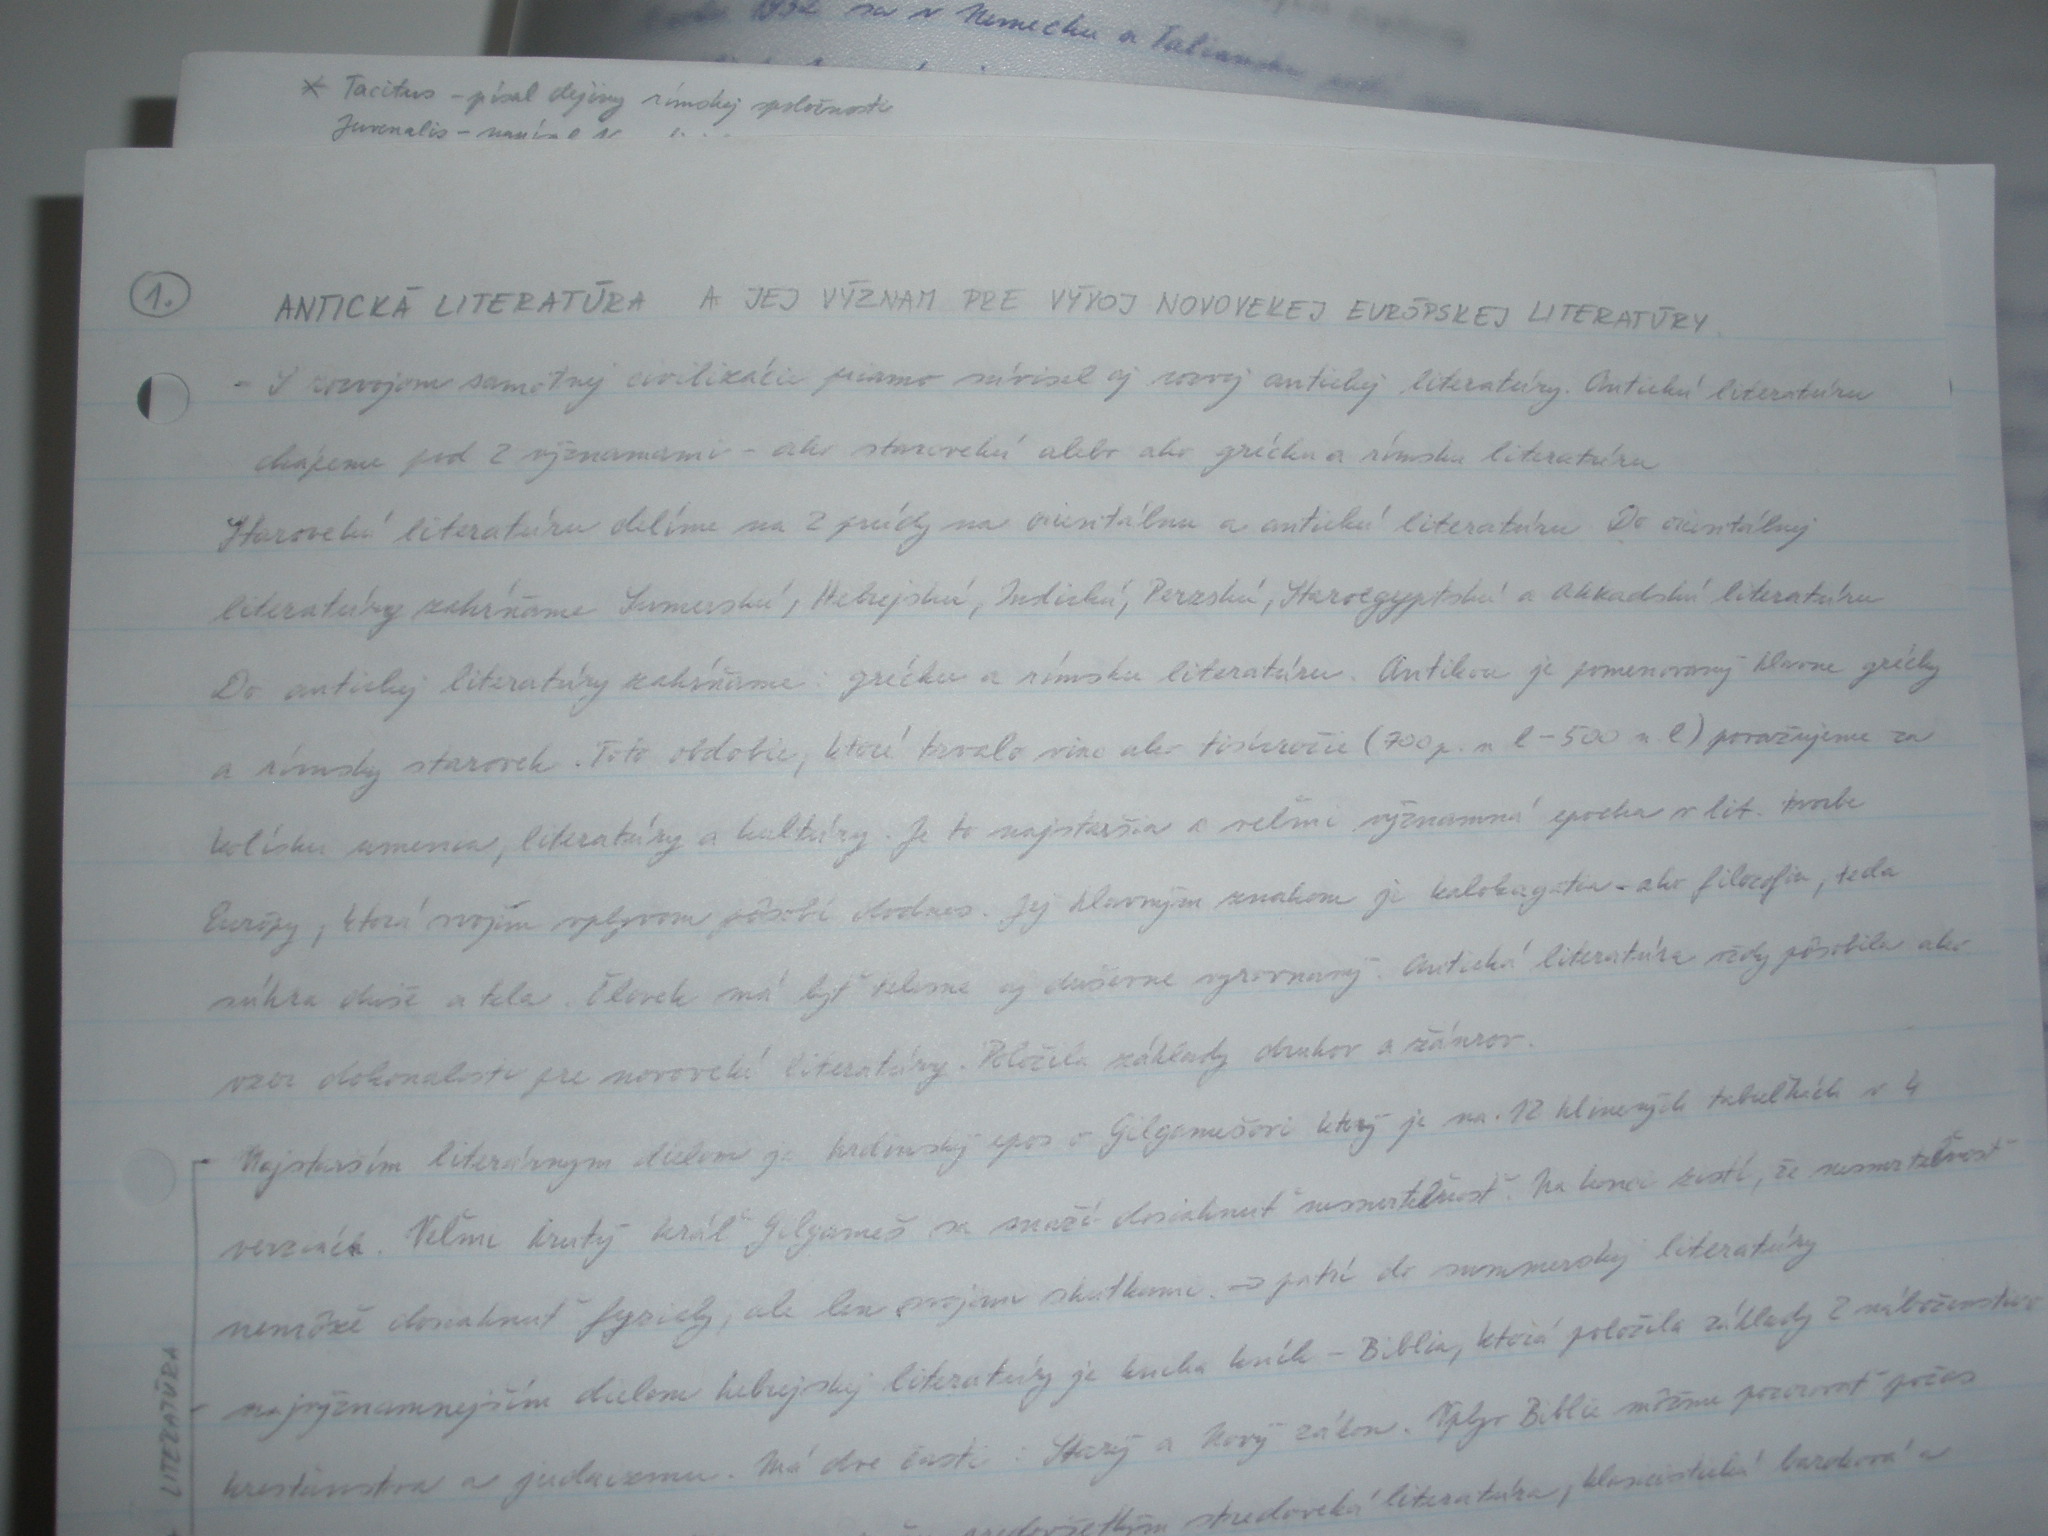 sa v Nemecku a Taliansku
* Tacitus - písal dejiny rímskej spoločnosti
Juvenalis -
1.
ANTICKÁ LITERATÚRA A JEJ VÝZNAM PRE VÝVOJ NOVOVEKEJ EURÓPSKEJ LITERATÚRY.
- S rozvojom samotnej civilizácie priamo súvisel aj rozvoj antickej literatúry. Antickú literatúru
chápeme pod 2 významami - ako starovekú alebo ako grécku a rímsku literatúru
Starovekú literatúru delíme na 2 prúdy na orientálnu a antickú literatúru Do orientálnej
literatúry zahŕňame Sumerskú, Hebrejskú, Indickú, Perzskú, Staroegyptskú a Akkadskú literatúru
Do antickej literatúry zahŕňame : grécku a rímsku literatúru. Antikou je pomenovaný hlavne grécky
a rímsky starovek. Toto obdobie, ktoré trvalo viac ako tisícročie (700 p. n. l - 500 n. l) považujeme za
kolísku umenia, literatúry a kultúry. Je to najstaršia a veľmi významná epocha v lit. tvorbe
Európy, ktorá svojím vplyvom pôsobí dodnes. Jej hlavným znakom je kalokagatia - ako filozofia, teda
súhra duše a tela. Človek má byť telesne aj duševne vyrovnaný. Antická literatúra vždy pôsobila ako
vzor dokonalosti pre novoveké literatúry. Položila základy druhov a žánrov.
Najstarším literárnym dielom je hrdinský epos o Gilgamešovi ktorý je na 12 hlinených tabuľkách v 4
verziách. Veľmi krutý kráľ Gilgameš sa snaží dosiahnuť nesmrteľnosť. Na konci zistí, že nesmrteľnosť
nemôže dosiahnuť fyzicky, ale len svojimi skutkami. → patrí do summerskej literatúry
najvýznamnejším dielom hebrejskej literatúry je kniha kníh - Biblia, ktorá položila základy 2 náboženstiev
kresťanstva a judaizmu. Má dve časti : Starý a Nový zákon. Vplyv Biblie môžme pozorovať počas
predovšetkým stredoveká literatúra, klasicistická baroková a
LITERATÚRA